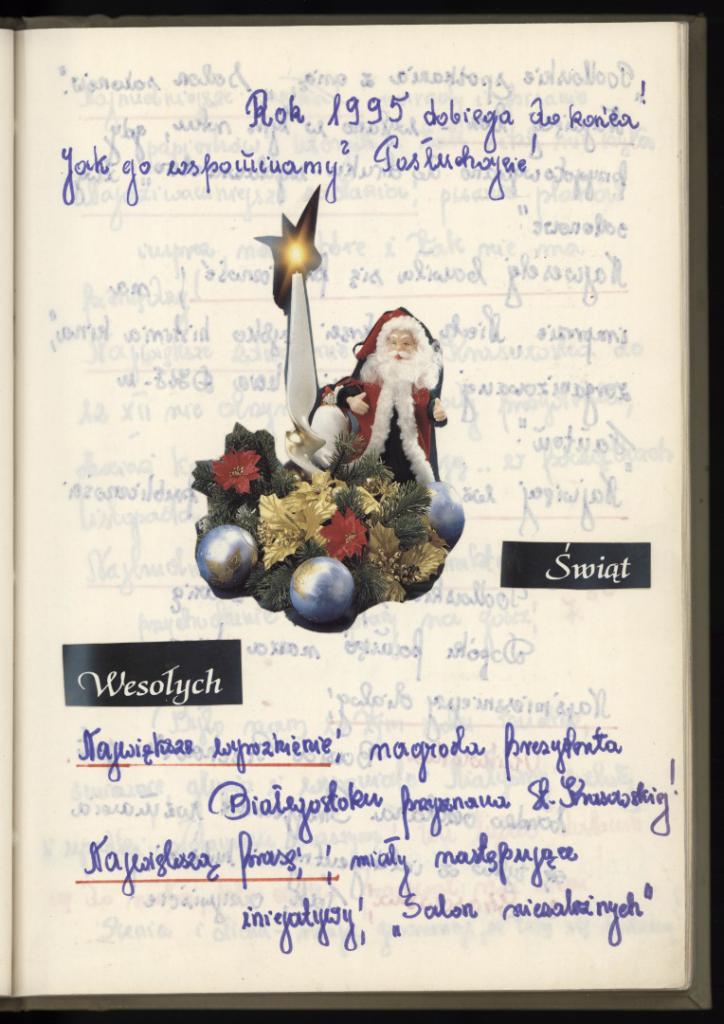 Rok 1995 dobiega do końca!
Jak go wspominamy? Posłuchajcie!
Świąt
Wesołych
Największe wyróżnienie, nagroda Prezydenta
Białegostoku przyznana
Największą prasę, miały następujące
inicjatywy, „Salon niezależnych"